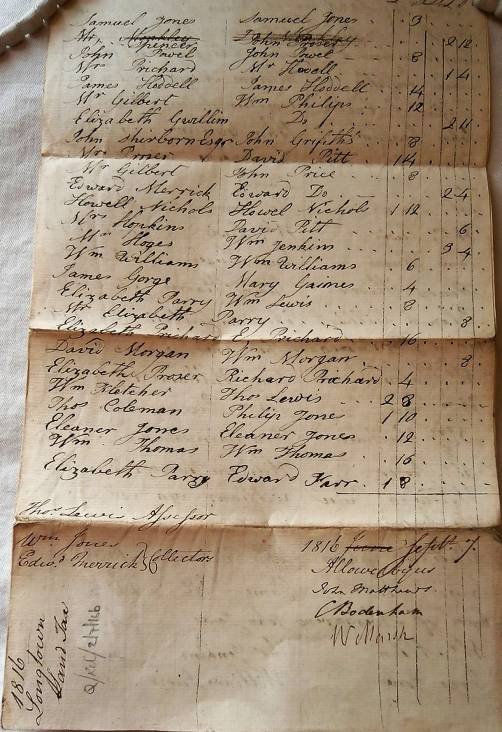 Samuel Jones Samuel Jones 3
Mr. Spencer John Proser 2 12
John Powel John Powel 8
Mrs Prichard Mr Howell 1 4
James Hodvell James Hodvell 14
Mr Gilbert Wm Philips 12
Elizabeth Gwillim Do 2 11
John Shirborn Esqr John Griffiths 8
Mrs Proser David Pitt 14
Mr Gilbert John Price 8
Edward Merrick Edward Do 2 4
Howell Nichols Howel Nichols 1 12
Mrs Hopkins David Pitt 6
Mr Hoges Wm Jenkins 3 4
Wm Williams Wm Williams 6
James Gorge Mary Gaines 4
Elizabeth Parry Wm Lewis 8
Mr Elizabeth Parry 8
Elizabeth Prichard E Prichard 16
David Morgan Wm Morgan 8
Elizabeth Proser Richard Prichard 4
Wm Fletcher Thos Lewis 2 8
Thos Coleman Philip Jones 1 10
Eleaner Jones Eleaner Jones 12
Wm Thomas Wm Thomas 16
Elizabeth Parry Edward Farr 1 8
Thos Lewis Assessor
Wm Jones
Edwd Merrick } Collectors
1816 June Septr 7
Allowed by us
John Matthews
C Bodenham
1816
Longtown
Land Tax